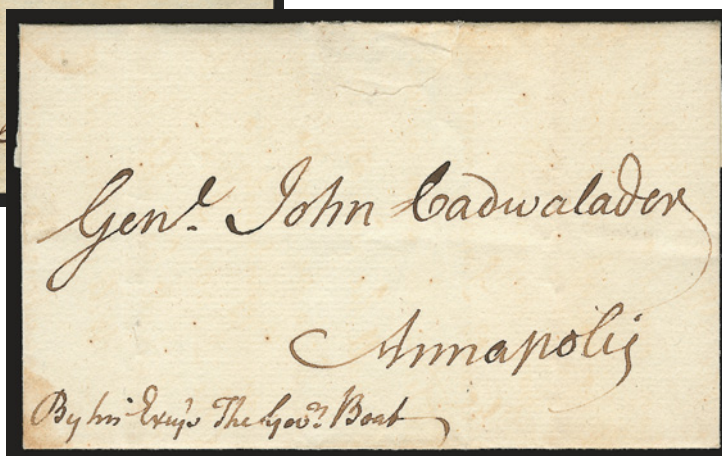 Genl. John Cadwalader
Annapolis
By his Excys The Govrs Boat